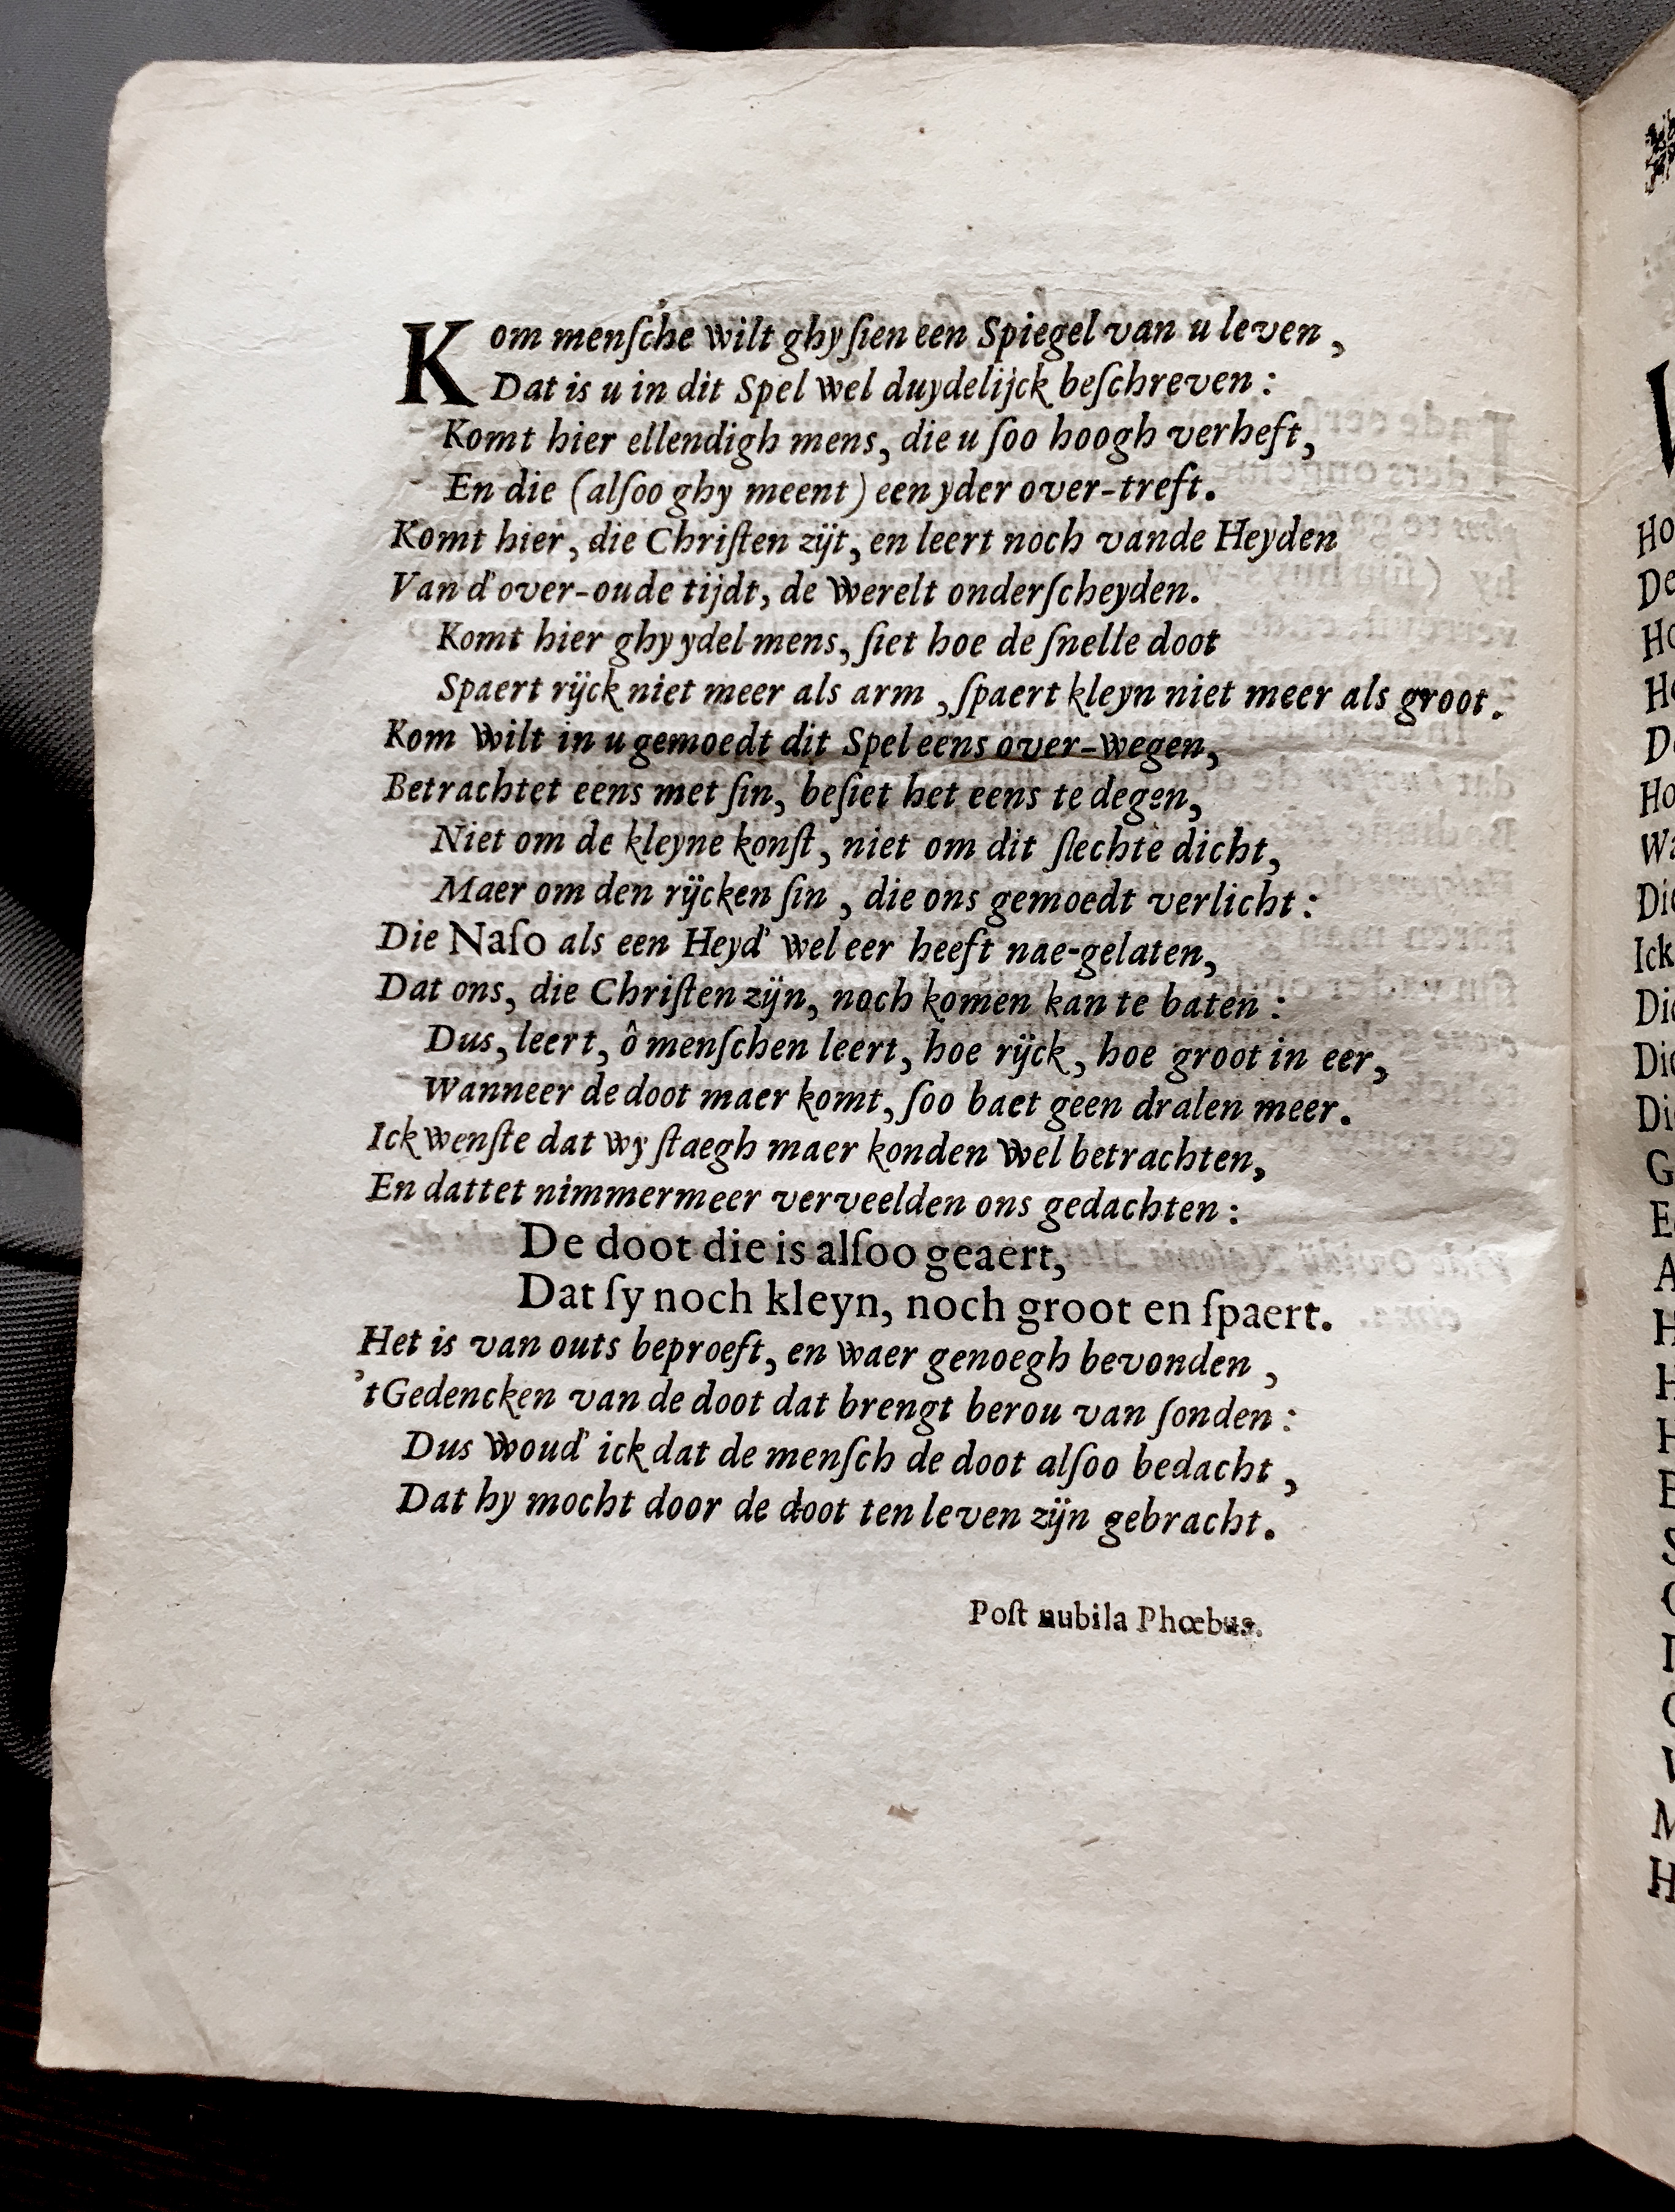 Kom menſche wilt ghy ſien een Spiegel van u leven,
Dat is u in dit Spel wel duydelijck beſchreven:
Komt hier ellendigh mens, die u ſoo hoogh verheft,
En die (alſoo ghy meent) een yder over-treft.
Komt hier, die Chriſten zijt, en leert noch vande Heyden
Van d'over-oude tijdt, de werelt onderſcheyden.
Komt hier ghy ydel mens, ſiet hoe de ſnelle doot
Spaert rijck niet meer als arm, ſpaert kleyn niet meer als groot.
Kom wilt in u gemoedt dit Spel eens over-wegen,
Betrachtet eens met ſin, beſiet het eens te degen,
Niet om de kleyne konſt, niet om dit ſlechte dicht,
Maer om den rijcken ſin, die ons gemoedt verlicht:
Die Naſo als een Heyd' wel eer heeft nae-gelaten,
Dat ons, die Chriſten zijn, noch komen kan te baten:
Dus, leert, ô menſchen leert, hoe rijck, hoe groot in eer,
Wanneer de doot maer komt, ſoo baet geen dralen meer.
Ick wenſte dat wy ſtaegh maer konden wel betrachten,
En dattet nimmermeer verveelden ons gedachten:
De doot die is alſoo geaert,
Dat ſy noch kleyn, noch groot en ſpaert.
Het is van outs beproeft, en waer genoegh bevonden,
't Gedencken van de doot dat brengt berou van ſonden:
Dus woud' ick dat de menſch de doot alſoo bedacht,
Dat hy mocht door de doot ten leven zijn gebracht.
Poſt nubila Phœbus.
Ho
De
Ho
He
De
Ho
Wa
Die
Ick
Die
Die
Di
G
E
A
H
H
H
E
S
M
H